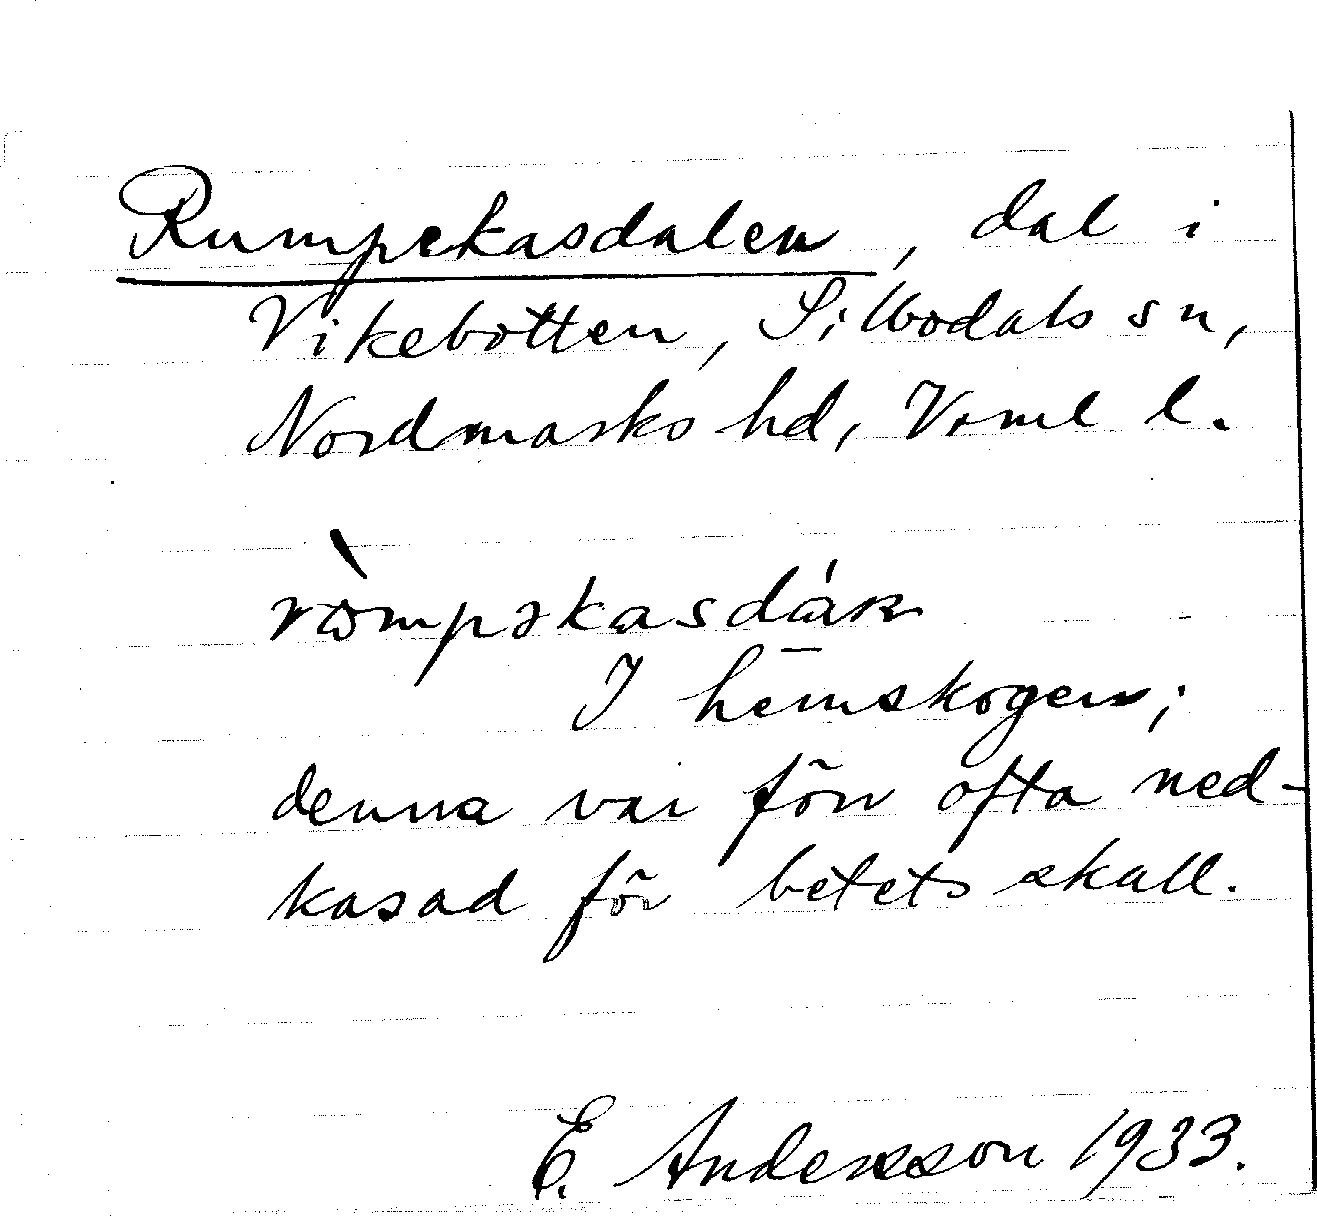 Rumpekasdalen, dal i
Vikebotten, Silbodals sn,
Nordmarks hd, Verml l.
I hemskogen;
denna var förr ofta ned-
kasad för betets skull.
E. Andersson 1933.